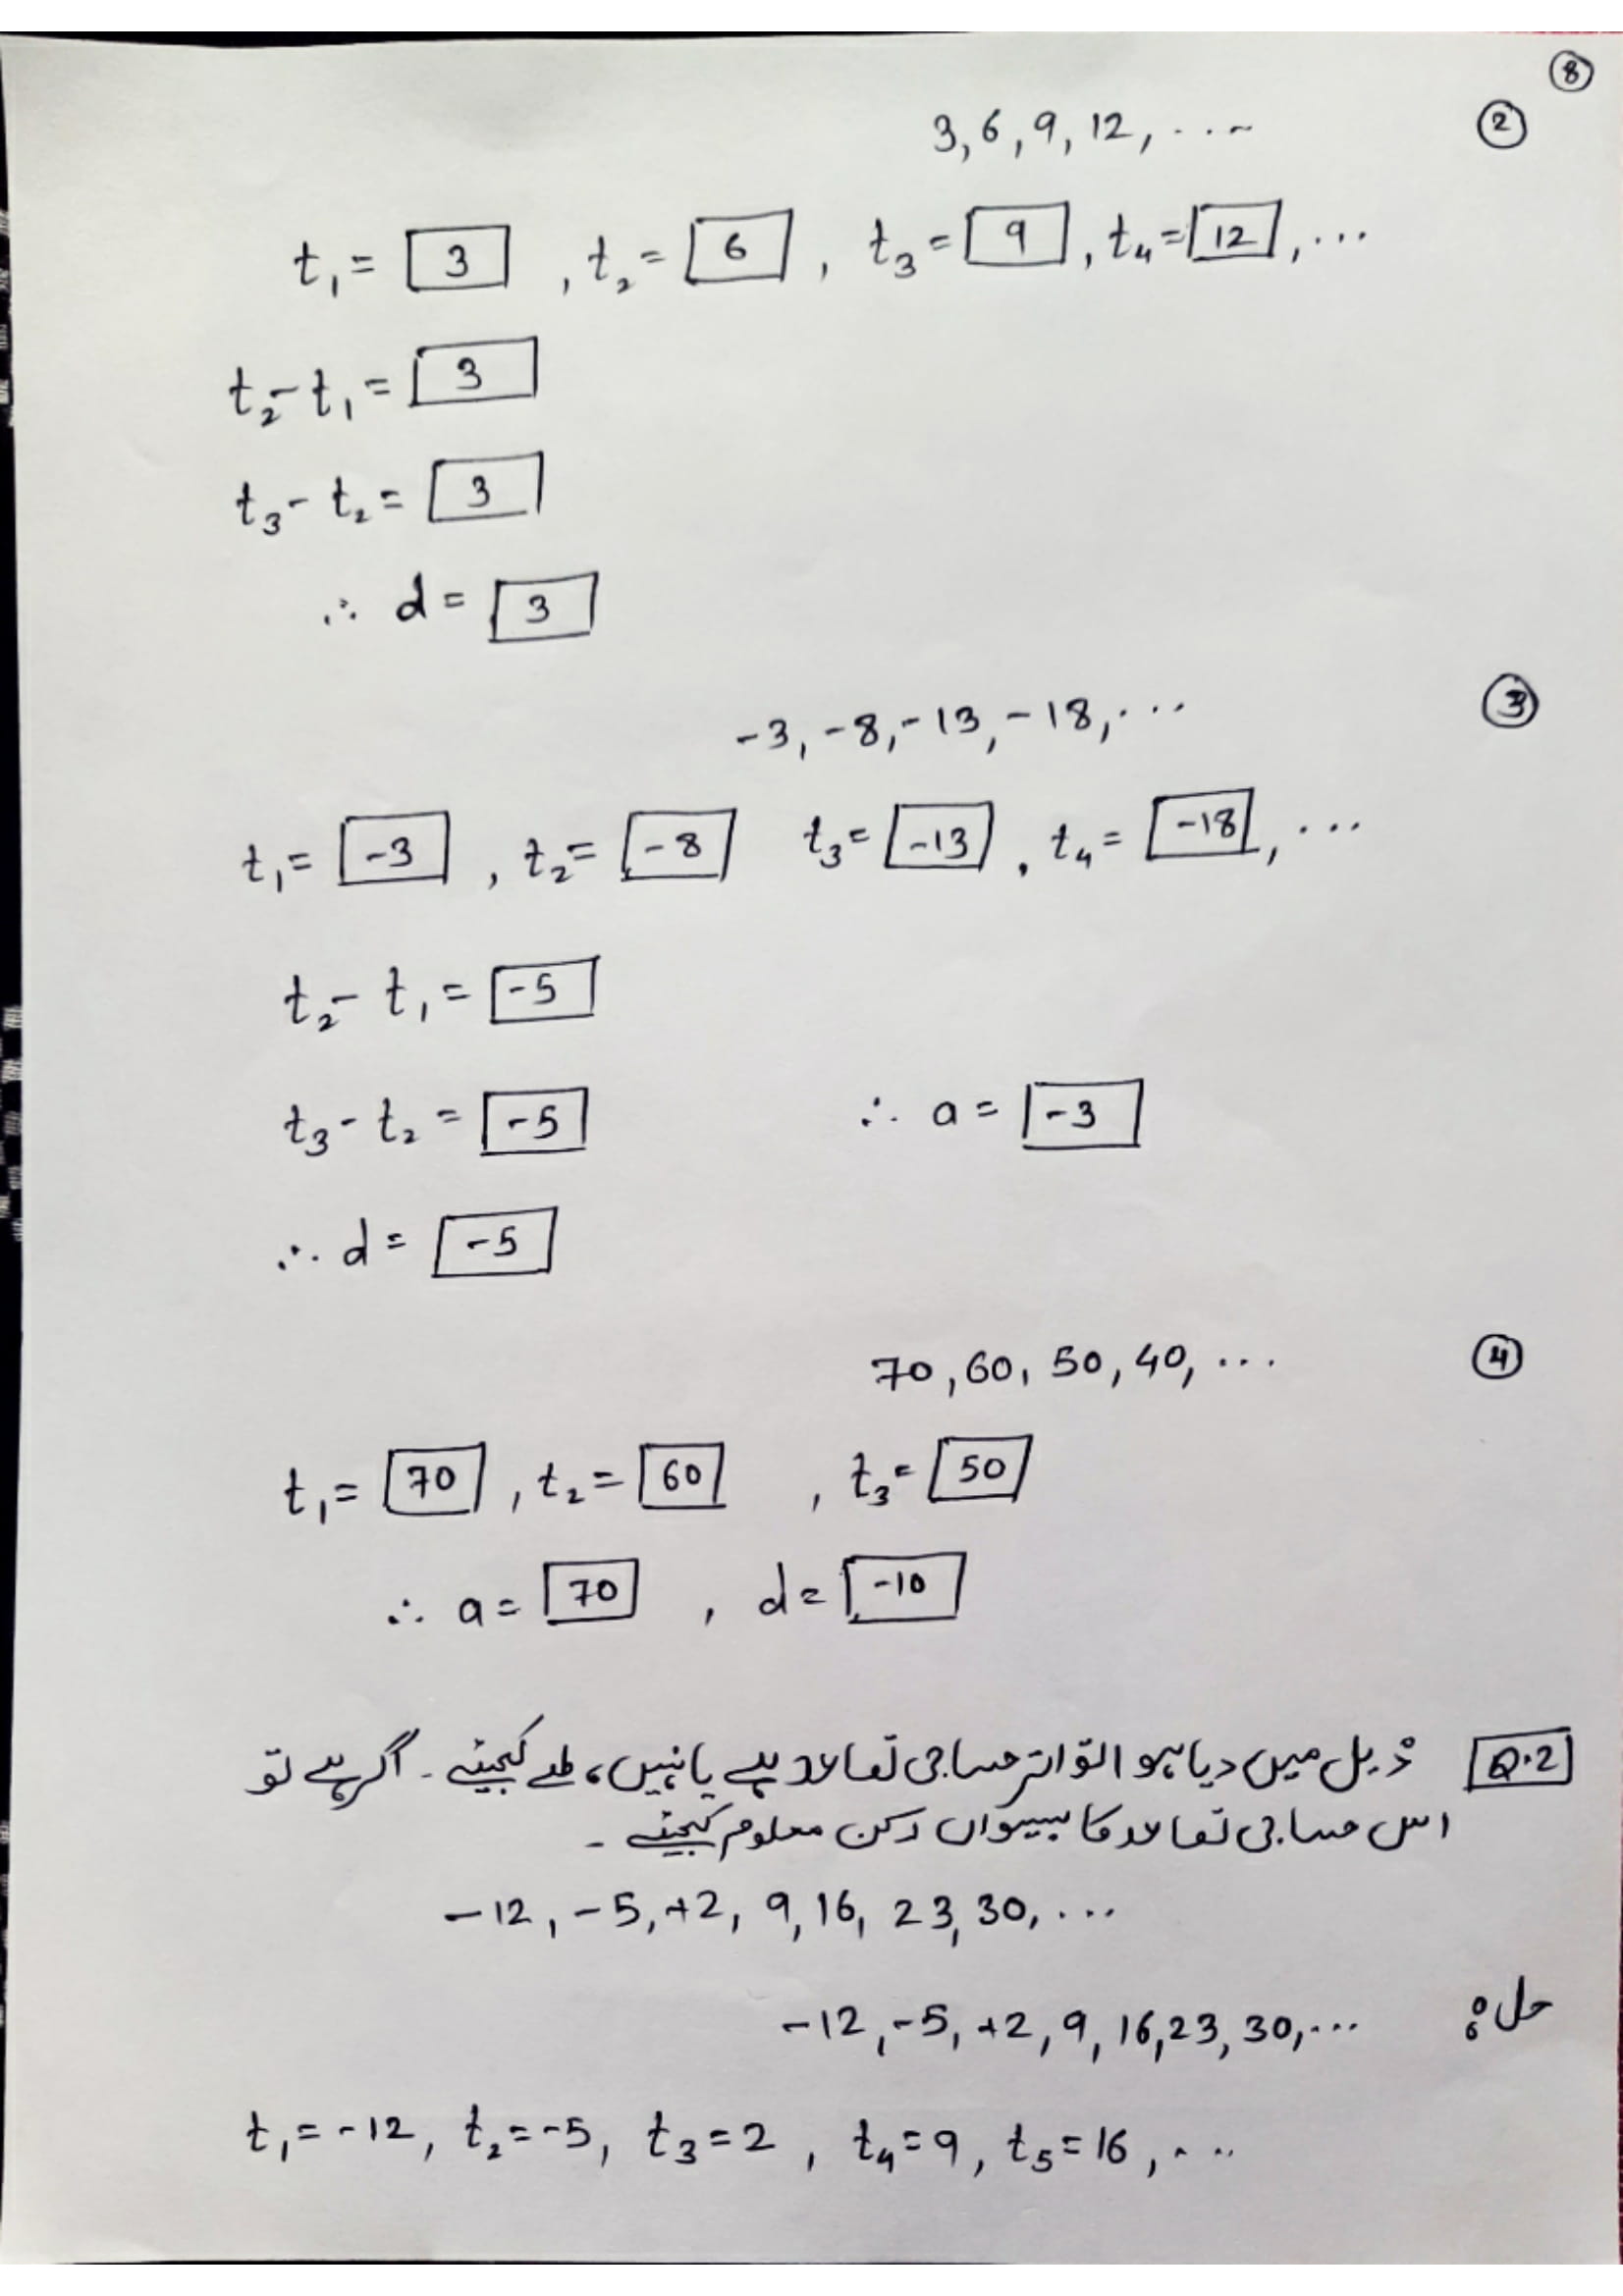 ⑧
② 3, 6, 9, 12, ...
t₁ = 3 , t₂ = 6 , t₃ = 9 , t₄ = 12 , ...
t₂ - t₁ = 3
t₃ - t₂ = 3
∴ d = 3
③ -3, -8, -13, -18, ...
t₁ = -3 , t₂ = -8 t₃ = -13 , t₄ = -18 , ...
t₂ - t₁ = -5
t₃ - t₂ = -5 ∴ a = -3
∴ d = -5
④ 70, 60, 50, 40, ...
t₁ = 70 , t₂ = 60 , t₃ = 50
∴ a = 70 , d = -10
Q.2 ذیل میں دیا ہوا تواتر حسابی تصاعد ہے یا نہیں، طے کیجیئے ۔ اگر ہے تو
اس حسابی تصاعد کا بیسواں رکن معلوم کیجیئے ۔
-12, -5, +2, 9, 16, 23, 30, ...
حل: -12, -5, +2, 9, 16, 23, 30, ...
t₁ = -12, t₂ = -5, t₃ = 2 , t₄ = 9, t₅ = 16 , ...